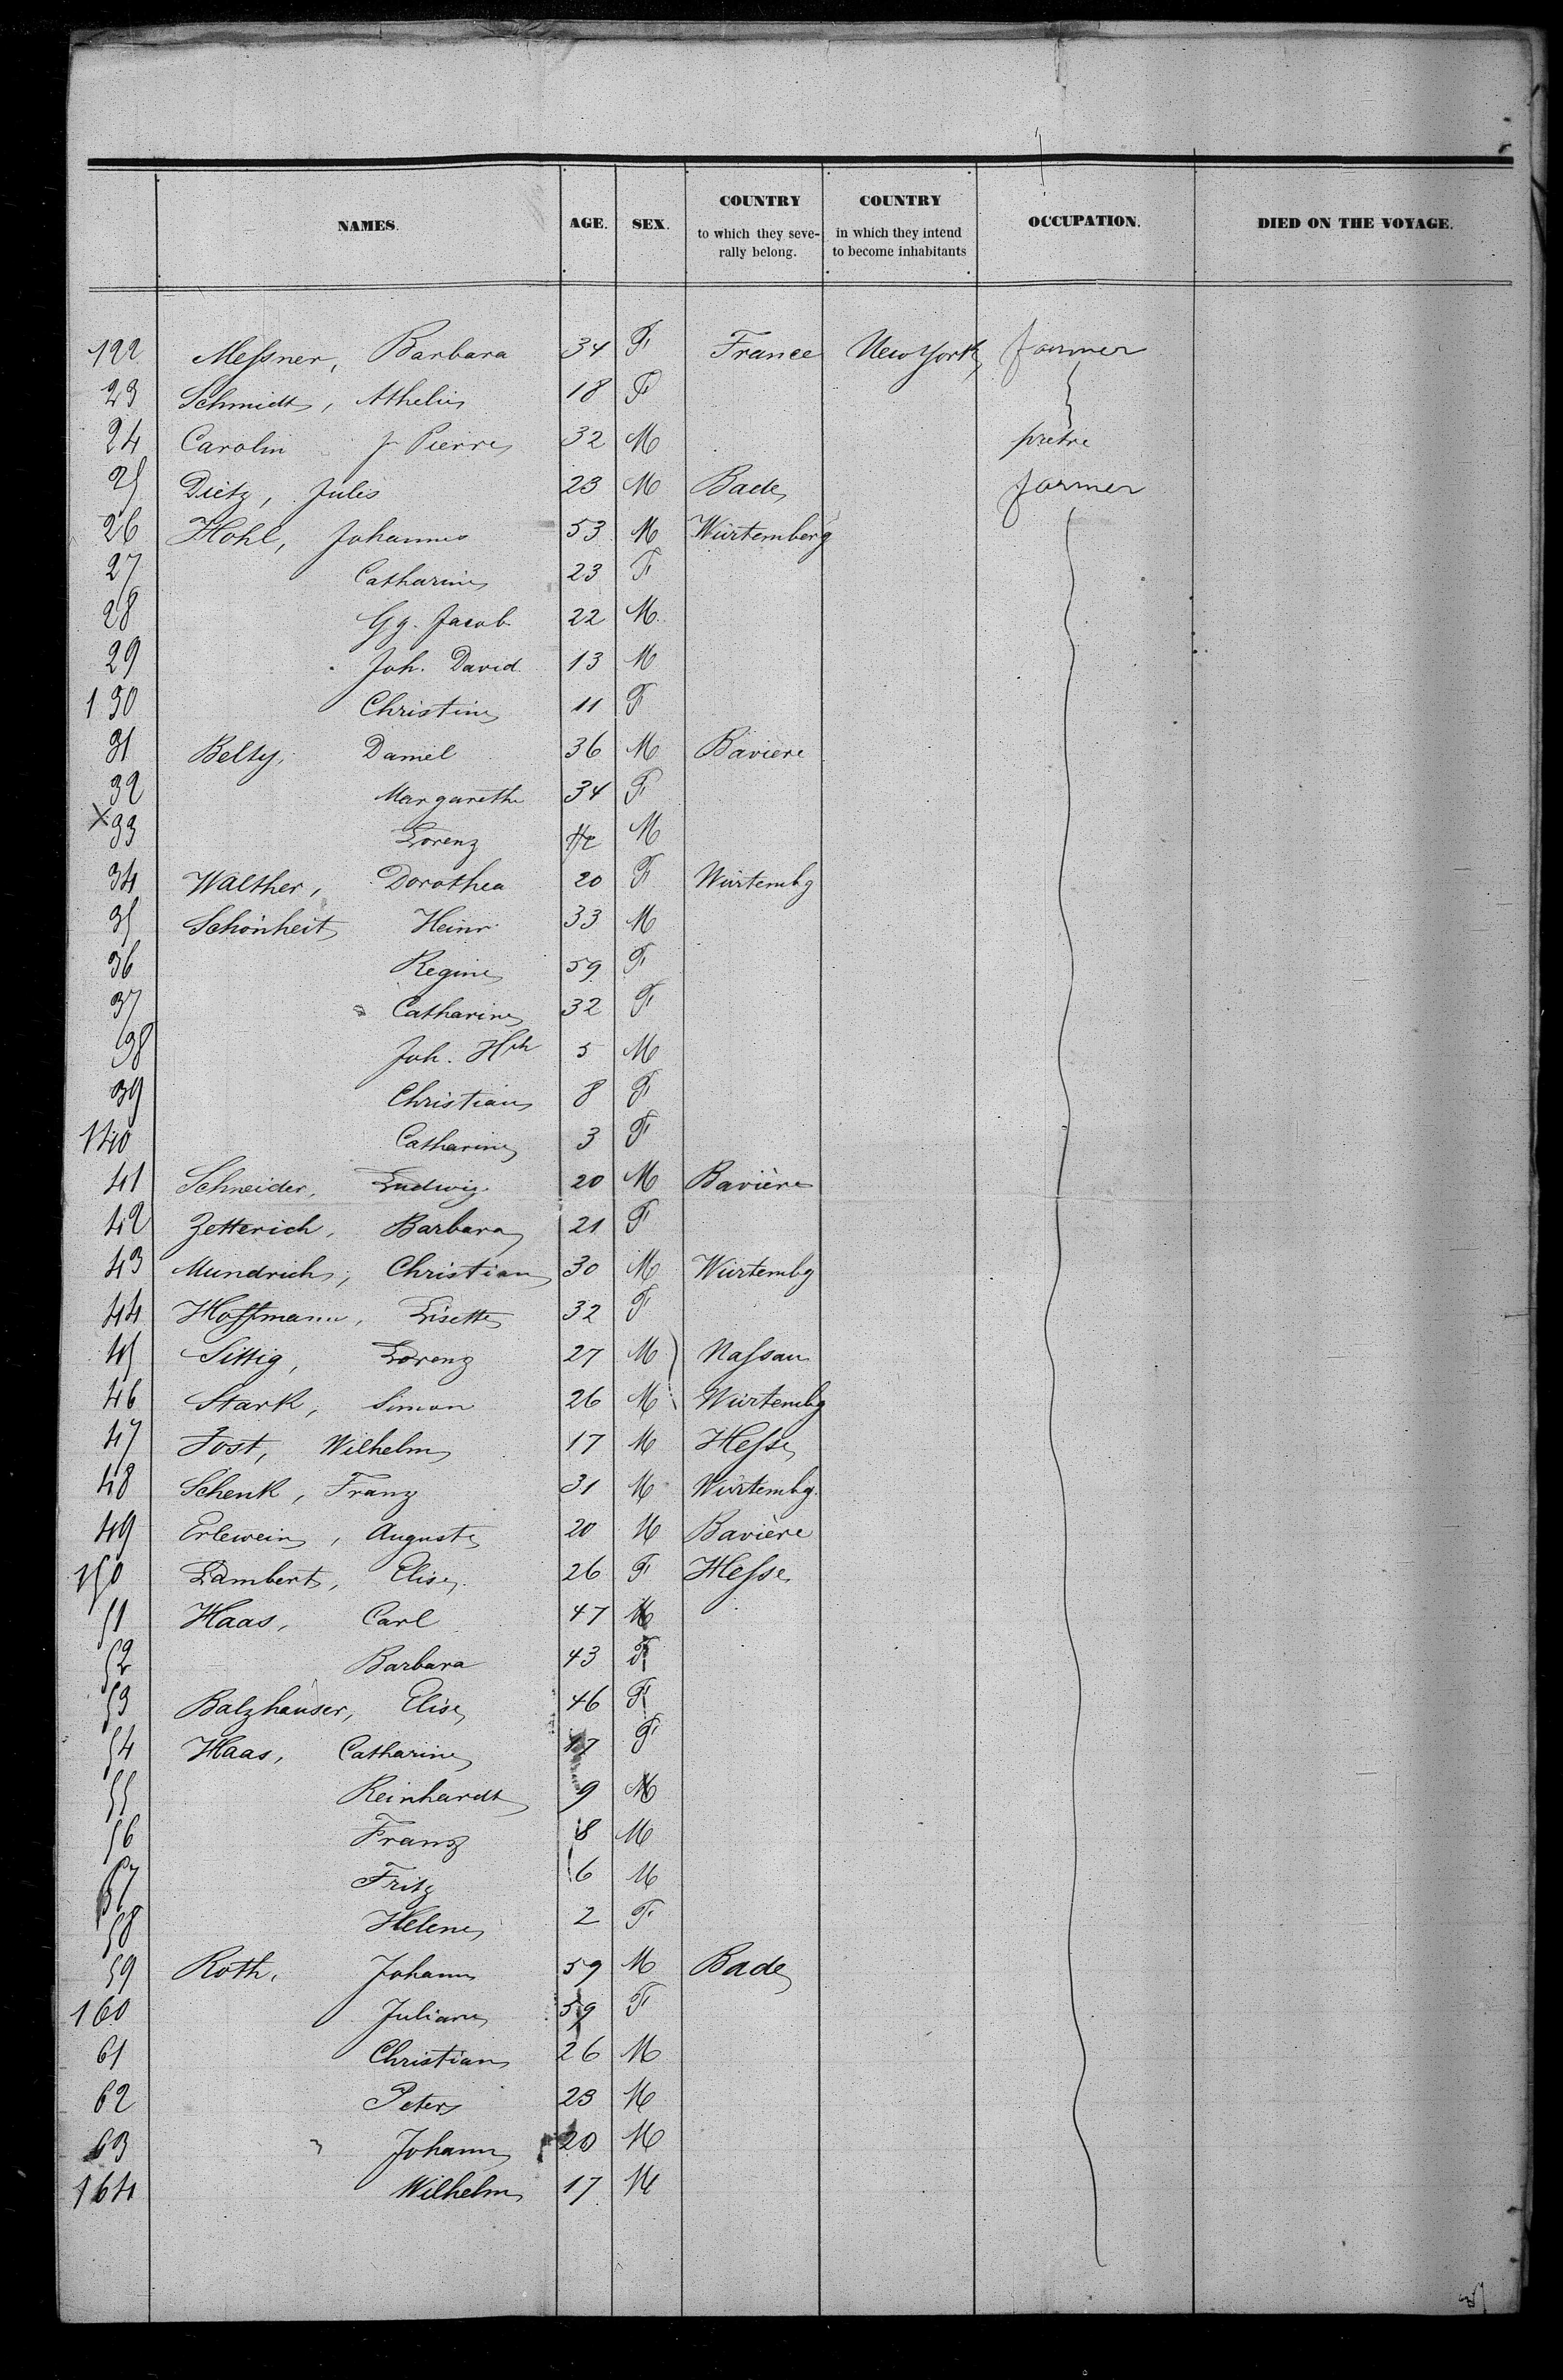 NAMES. AGE. SEX. COUNTRY to which they severally belong. COUNTRY in which they intend to become inhabitants OCCUPATION. DIED ON THE VOYAGE.
122 Messner, Barbara 34 F France New York farmer
23 Schmidt, Athelie 18 F
24 Carolin J Pierre 32 M pretre
25 Dietz, Jules 23 M Bade farmer
26 Hohl, Johannes 53 M Würtemberg
27 Catharine 23 F
28 Gg. Jacob 22 M
29 Joh. David 13 M
130 Christine 11 F
31 Belty, Daniel 36 M Bavière
32 Margarethe 34 F
X 33 Lorenz M
34 Walther, Dorothea 20 F Würtembg
35 Schönheit Heinr 33 M
36 Regine 59 F
37 Catharine 32 F
38 Joh. Hch 5 M
39 Christian 8 F
140 Catharine 3 F
41 Schneider, Ludwig 20 M Bavière
42 Zetterich, Barbara 21 F
43 Mundrich, Christian 30 M Würtembg
44 Hoffmann, Lisette 32 F
45 Sittig, Lorenz 27 M Nassau
46 Stark, Simon 26 M Würtembg
47 Jost, Wilhelm 17 M Hesse
48 Schenk, Franz 31 M Würtembg.
49 Erlewein, Auguste 20 M Bavière
150 Lambert, Elise 26 F Hesse
51 Haas, Carl 47 M
52 Barbara 43 F
53 Balzhäuser, Elise 46 F
54 Haas, Catharine 17 F
55 Reinhardt 9 M
56 Franz 8 M
57 Fritz 6 M
58 Helene 2 F
59 Roth, Johann 59 M Bade
160 Juliane 59 F
61 Christian 26 M
62 Peter 23 M
63 Johann 20 M
164 Wilhelm 17 M